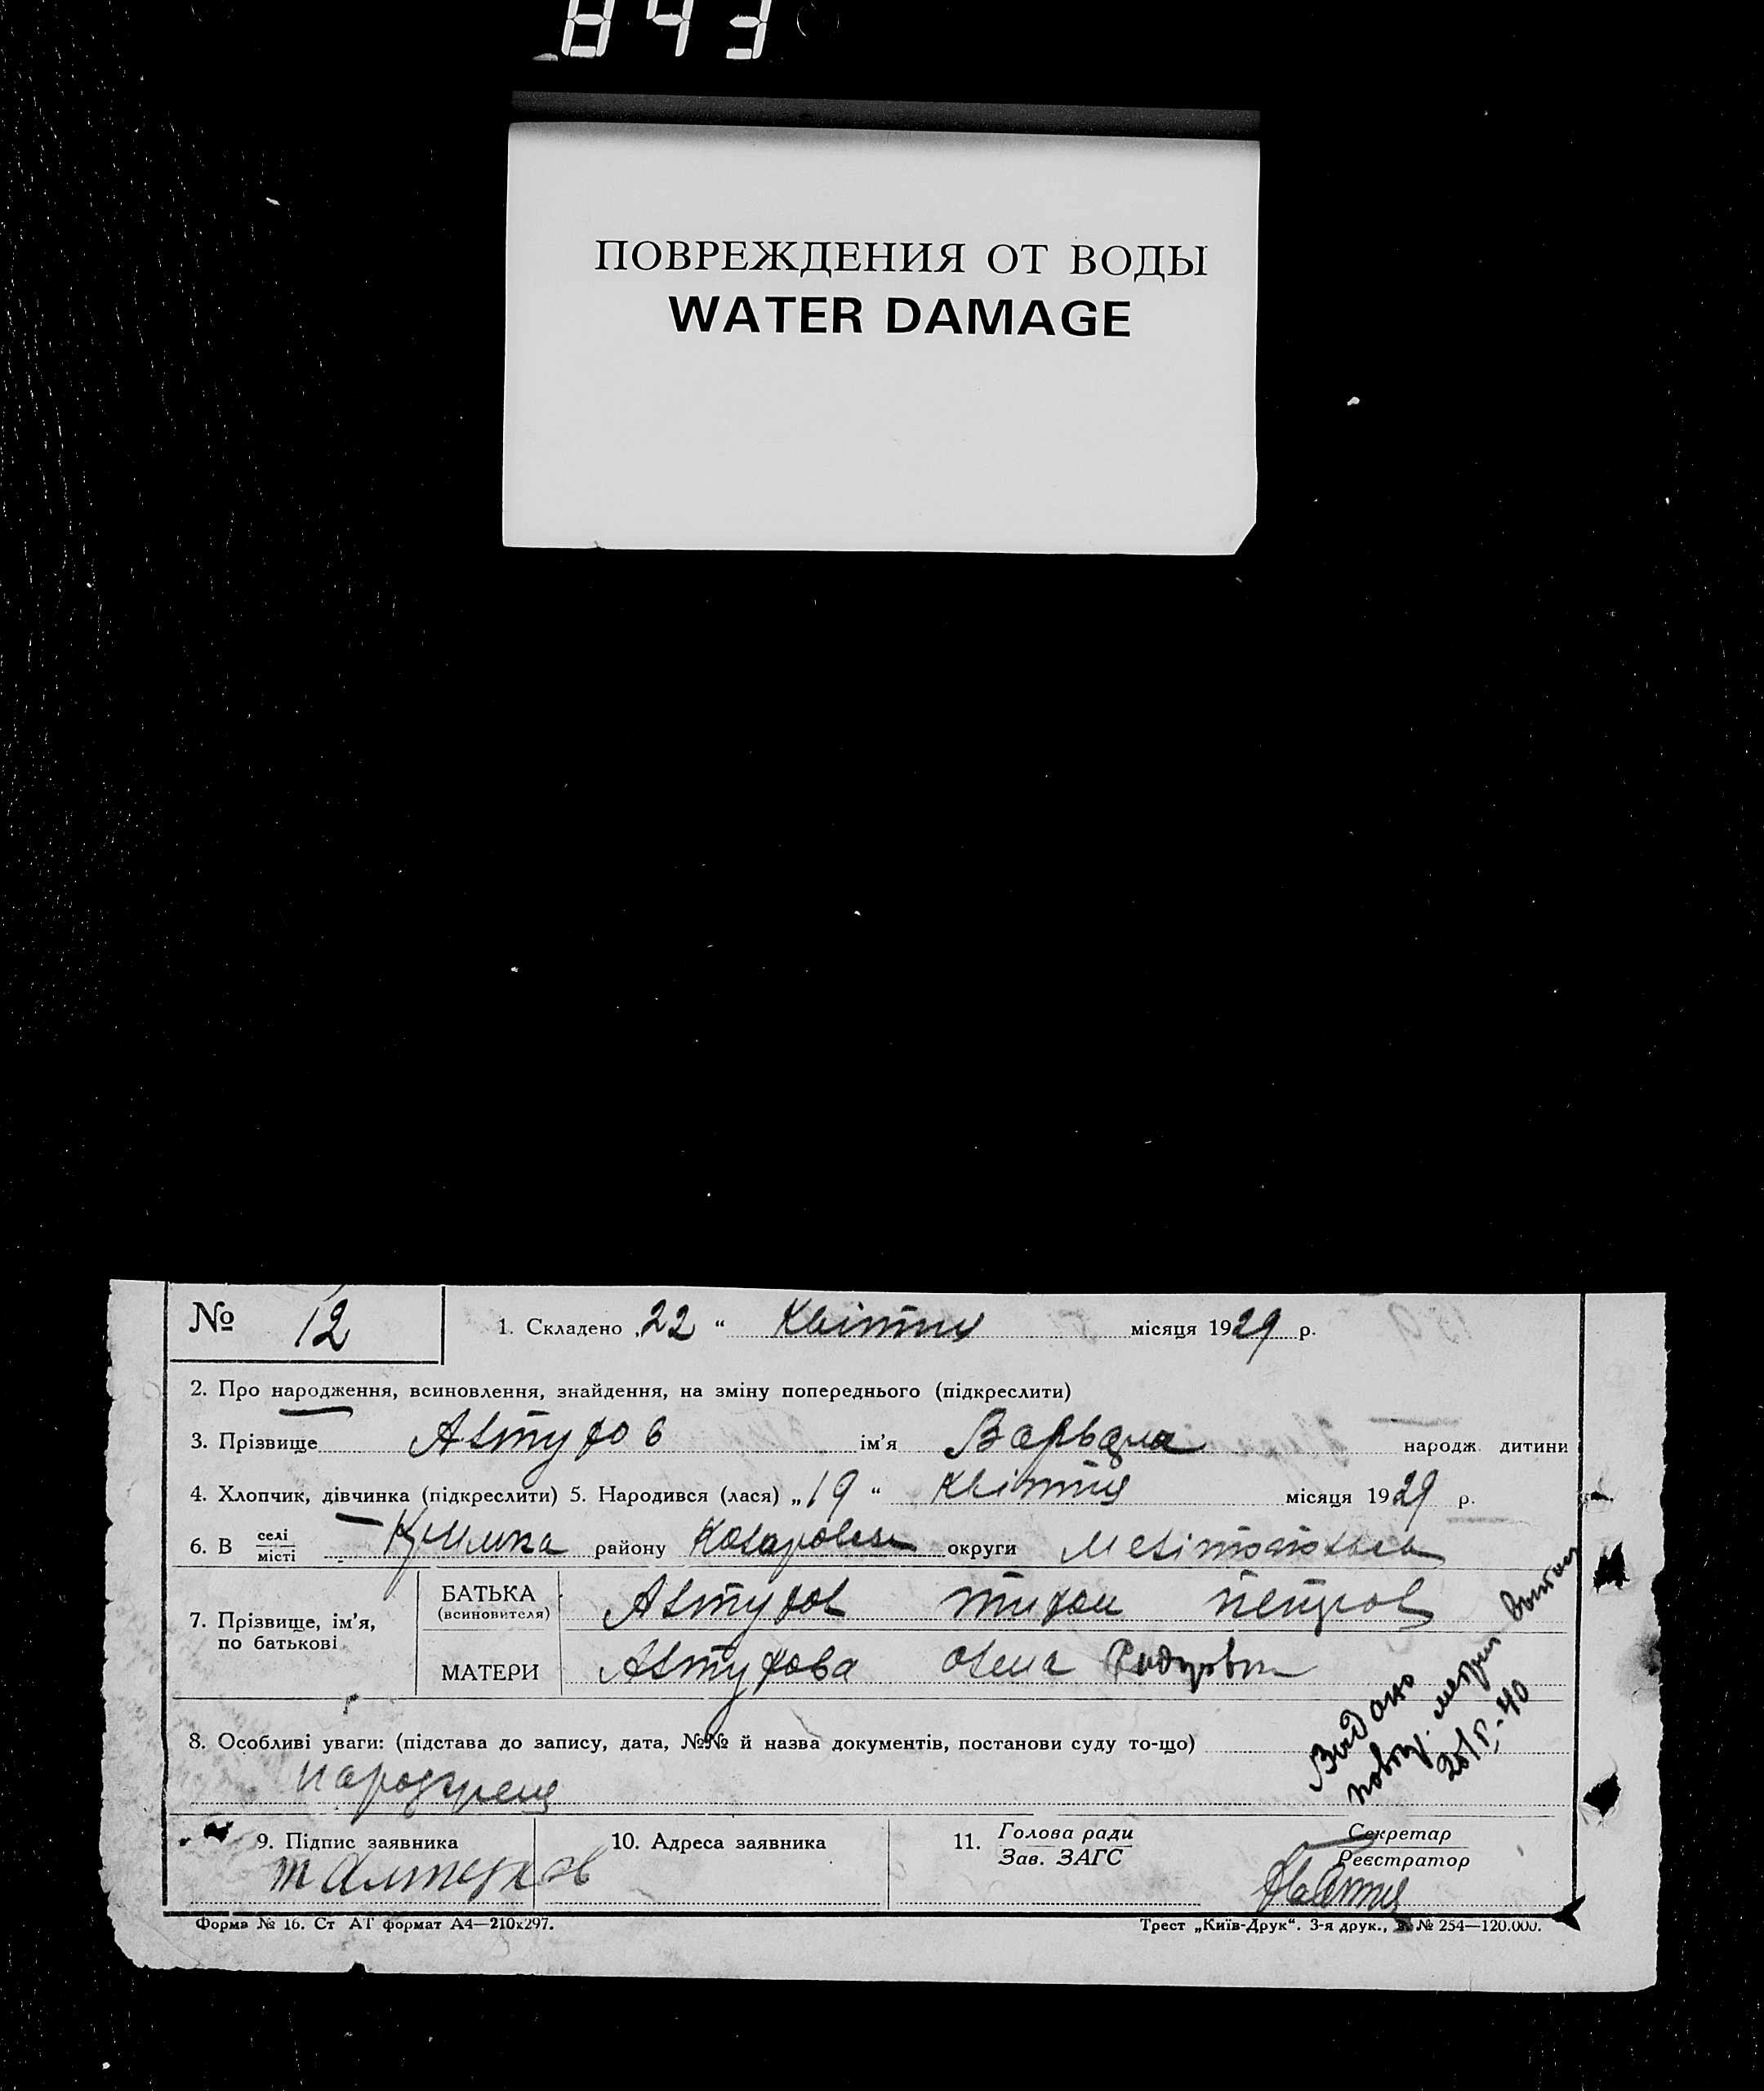 843
ПОВРЕЖДЕНИЯ ОТ ВОДЫ
WATER DAMAGE
№ 12
1. Складено „22“ Квітня місяця 1929 р.
2. Про народження, всиновлення, знайдення, на зміну попереднього (підкреслити)
3. Прізвище Автухов ім’я Варвара народж. дитини
4. Хлопчик, дівчинка (підкреслити) 5. Народився (лася) „19“ Квітня місяця 1929 р.
6. В селі місті району округи
7. Прізвище, ім’я, по батькові
БАТЬКА (всиновителя) Автухов Тихон Петров
МАТЕРИ Автухова
8. Особливі уваги: (підстава до запису, дата, №№ й назва документів, постанови суду то-що)
Видано
9. Підпис заявника
10. Адреса заявника
11. Голова ради Зав. ЗАГС
Секретар Реєстратор
Форма № 16. Ст АТ формат А4—210х297.
Трест „Київ-Друк“. 3-я друк., З. № 254—120.000.